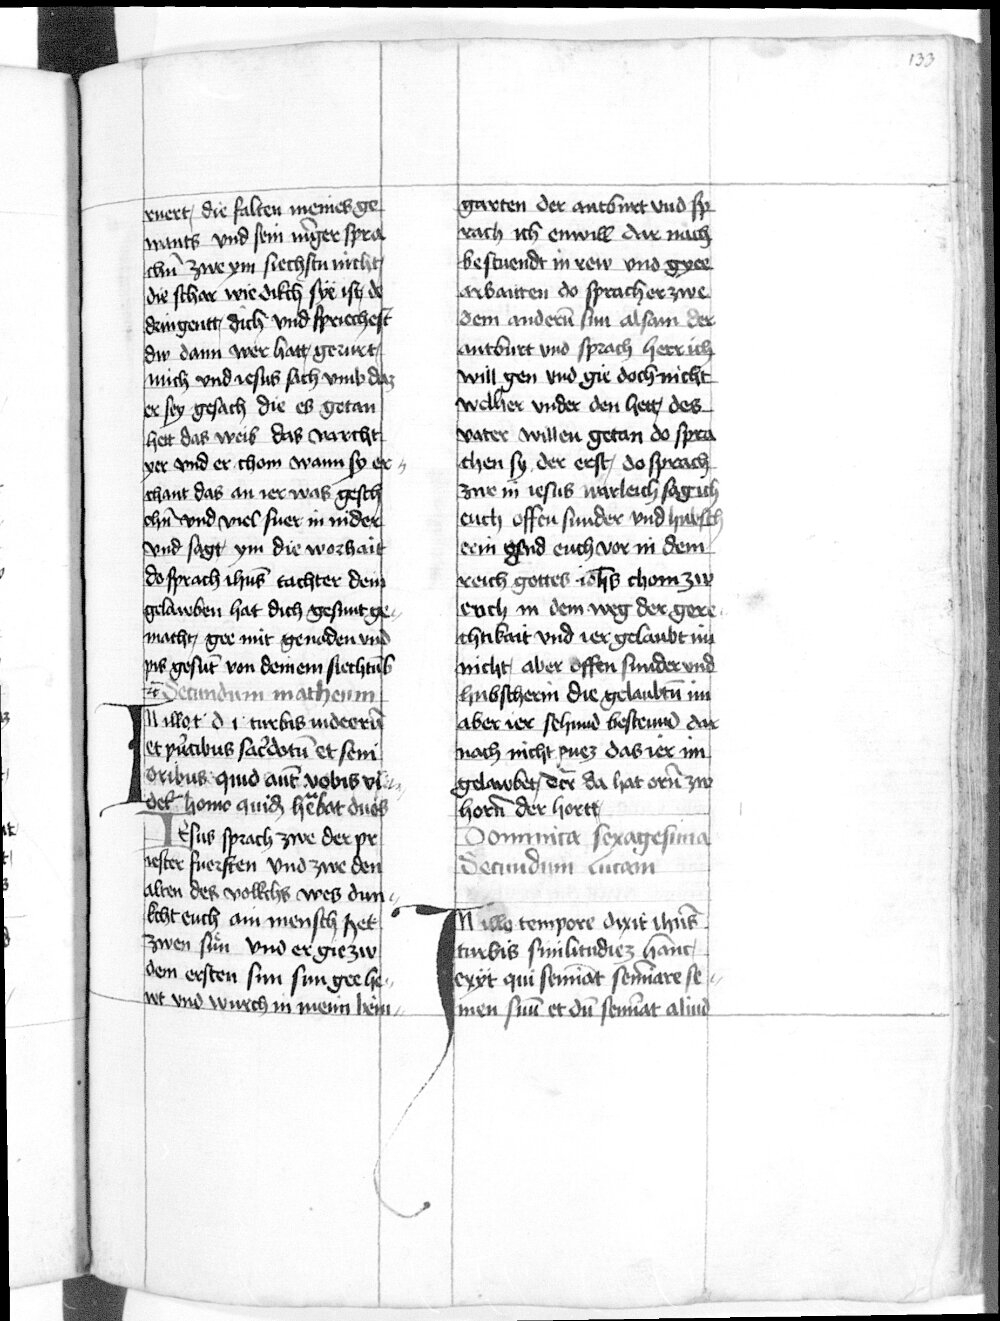 133
ruert die falten meines ge
wants und sein iu̅ger spra
chn̅ zwe ym siechstu nicht
die schar wie dikch sye ist de
dringentt dich und sprichest
dw dann wer hatt gerurt
mich und iesus sach umb daz
er sey gesach die es getan
hett das weib das varcht
yer und er chom wann sy er
chant das an ier was gesch
ehn̅ und viel fuer in nider
und sagt ym die worhait
do sprach ihus̅ tachter dein
gelawben hat dich gesunt ge
macht gee mit genaden und
pis gesu̅t von deinem siechtu̅b
Secundum matheum
IN illo t d i turbis iudeoru̅
et pri̅cibus sac̅dotu̅ et seni
oribus quid aut̅ vobis vi
det̅ homo quid̅ he̅bat duos
Iesus sprach zwe der pr
iester fuersten und zwe den
alten des vollkchs wes dun
kcht euch ain mensch het
zwen sün und er gie zw
dem ersten sun sun gee he
wt und wurch in meim bein
garten der antburt und sp
rach ich enwill dar nach
bestuendt in rew und gyee
arbaitten do sprach er zwe
dem andern̅ sun alsam der
antburt und sprach herr ich
will gen und gie doch nicht
welher under den hett des
vater willen getan do spra
chen sy der erst do sprach
zw in iesus warleich sag ich
euch offen sunder und hubsch
erin gend euch vor in dem
reich gottes ioh̅s chom zw
euch in dem weg der gere
chtikait und ier gelaubt im
nicht aber offen sunder und
hubscherin die gelaubtn̅ im
aber ier sehund besteund dar
nach nicht puez das ier im
gelawbet der̅ da hat orn̅ zw
horn̅ der hortt
Dominica sexagesima
Secundum lucam
IN illo tempore dixit ihus̅
turbis similitudiez hanc
exyt qui semi̅at semi̅are se
men suu̅ et du̅ semi̅at aliud